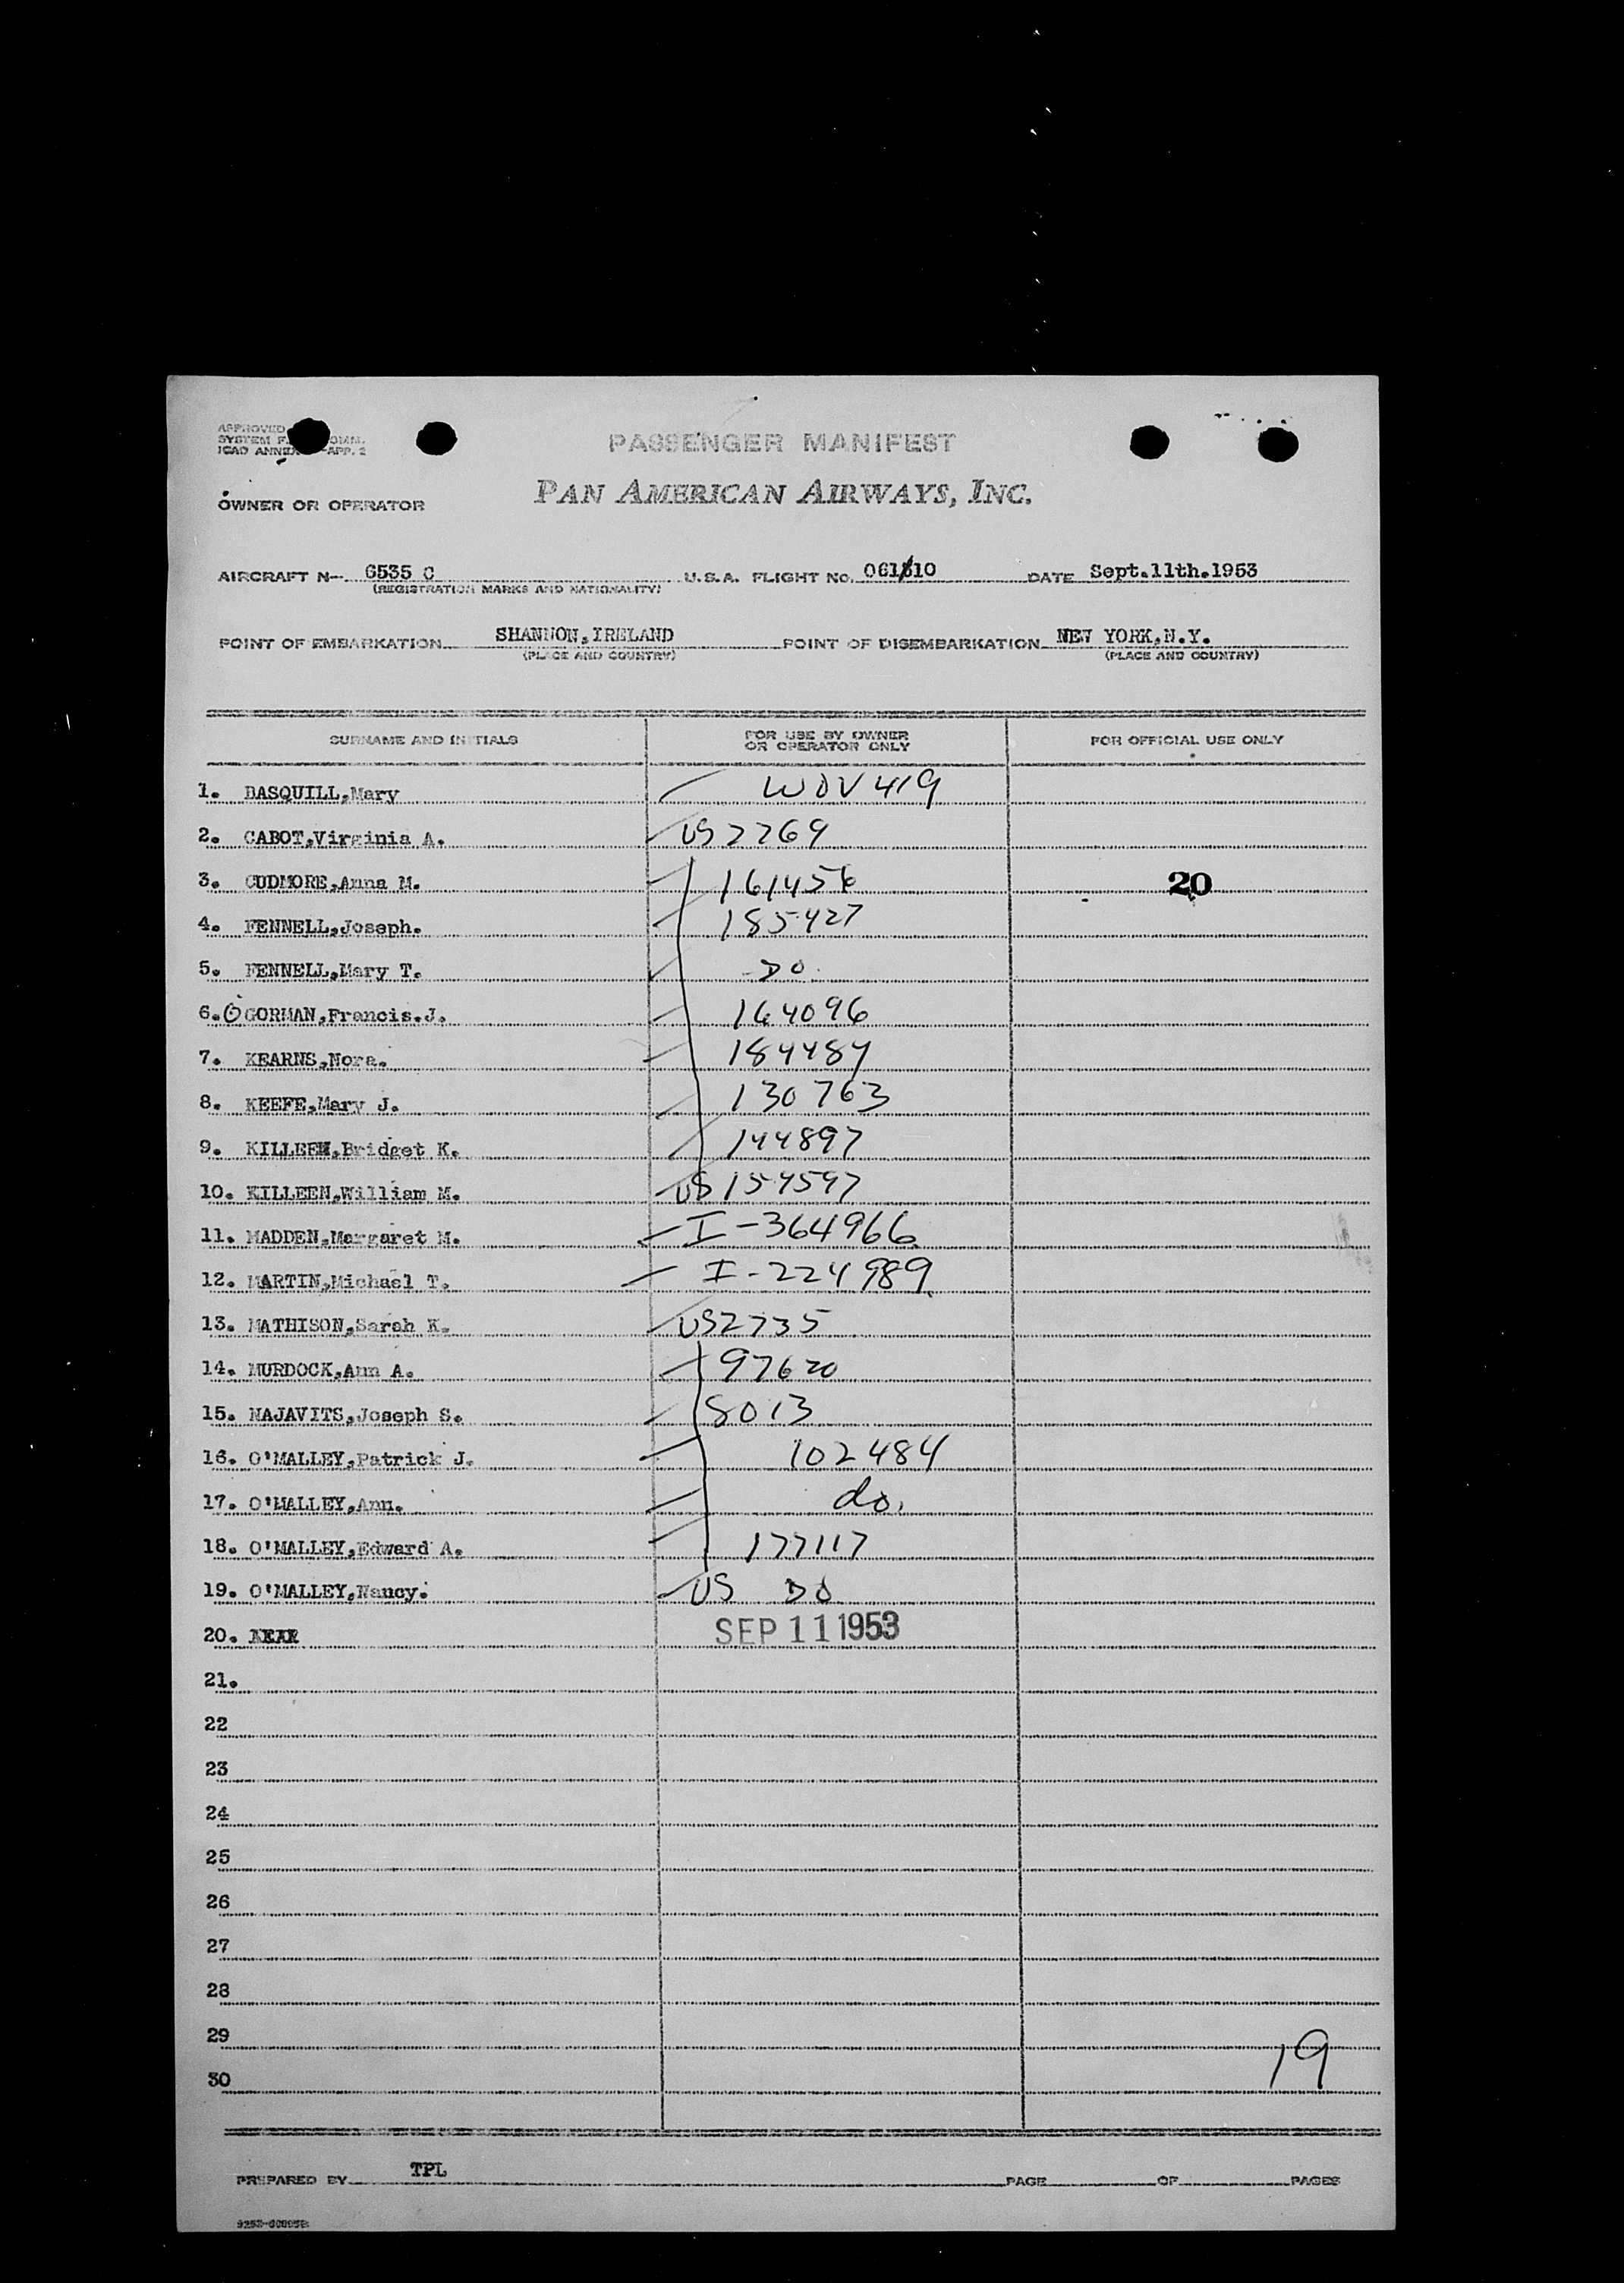 PASSENGER MANIFEST
PAN AMERICAN AIRWAYS, INC.
OWNER OR OPERATOR
AIRCRAFT N- 6535 C U.S.A. FLIGHT NO. 061/10 DATE Sept.11th.1953
(REGISTRATION MARKS AND NATIONALITY)
POINT OF EMBARKATION SHANNON,IRELAND POINT OF DISEMBARKATION NEW YORK,N.Y.
(PLACE AND COUNTRY) (PLACE AND COUNTRY)
SURNAME AND INITIALS FOR USE BY OWNER OR OPERATOR ONLY FOR OFFICIAL USE ONLY
1. BASQUILL,Mary WDV419
2. CABOT,Virginia A. US 2269
3. CUDMORE,Anna M. 161456 20
4. FENNELL,Joseph. 185427
5. FENNELL,Mary T. DO
6. O GORMAN,Francis.J. 164096
7. KEARNS,Nora. 184484
8. KEEFE,Mary J. 130763
9. KILLEEN,Bridget K. 144897
10. KILLEEN,William M. US 154597
11. MADDEN,Margaret M. I-364966
12. MARTIN,Michael T. I-224989
13. MATHISON,Sarah K. US2735
14. MURDOCK,Ann A. 97620
15. NAJAVITS,Joseph S. 8013
16. O'MALLEY,Patrick J. 102484
17. O'MALLEY,Ann. do.
18. O'MALLEY,Edward A. 177117
19. O'MALLEY,Nancy. US DO
20. SEP 11 1953
21.
22
23
24
25
26
27
28
29
30
19
PREPARED BY TPL PAGE OF PAGES